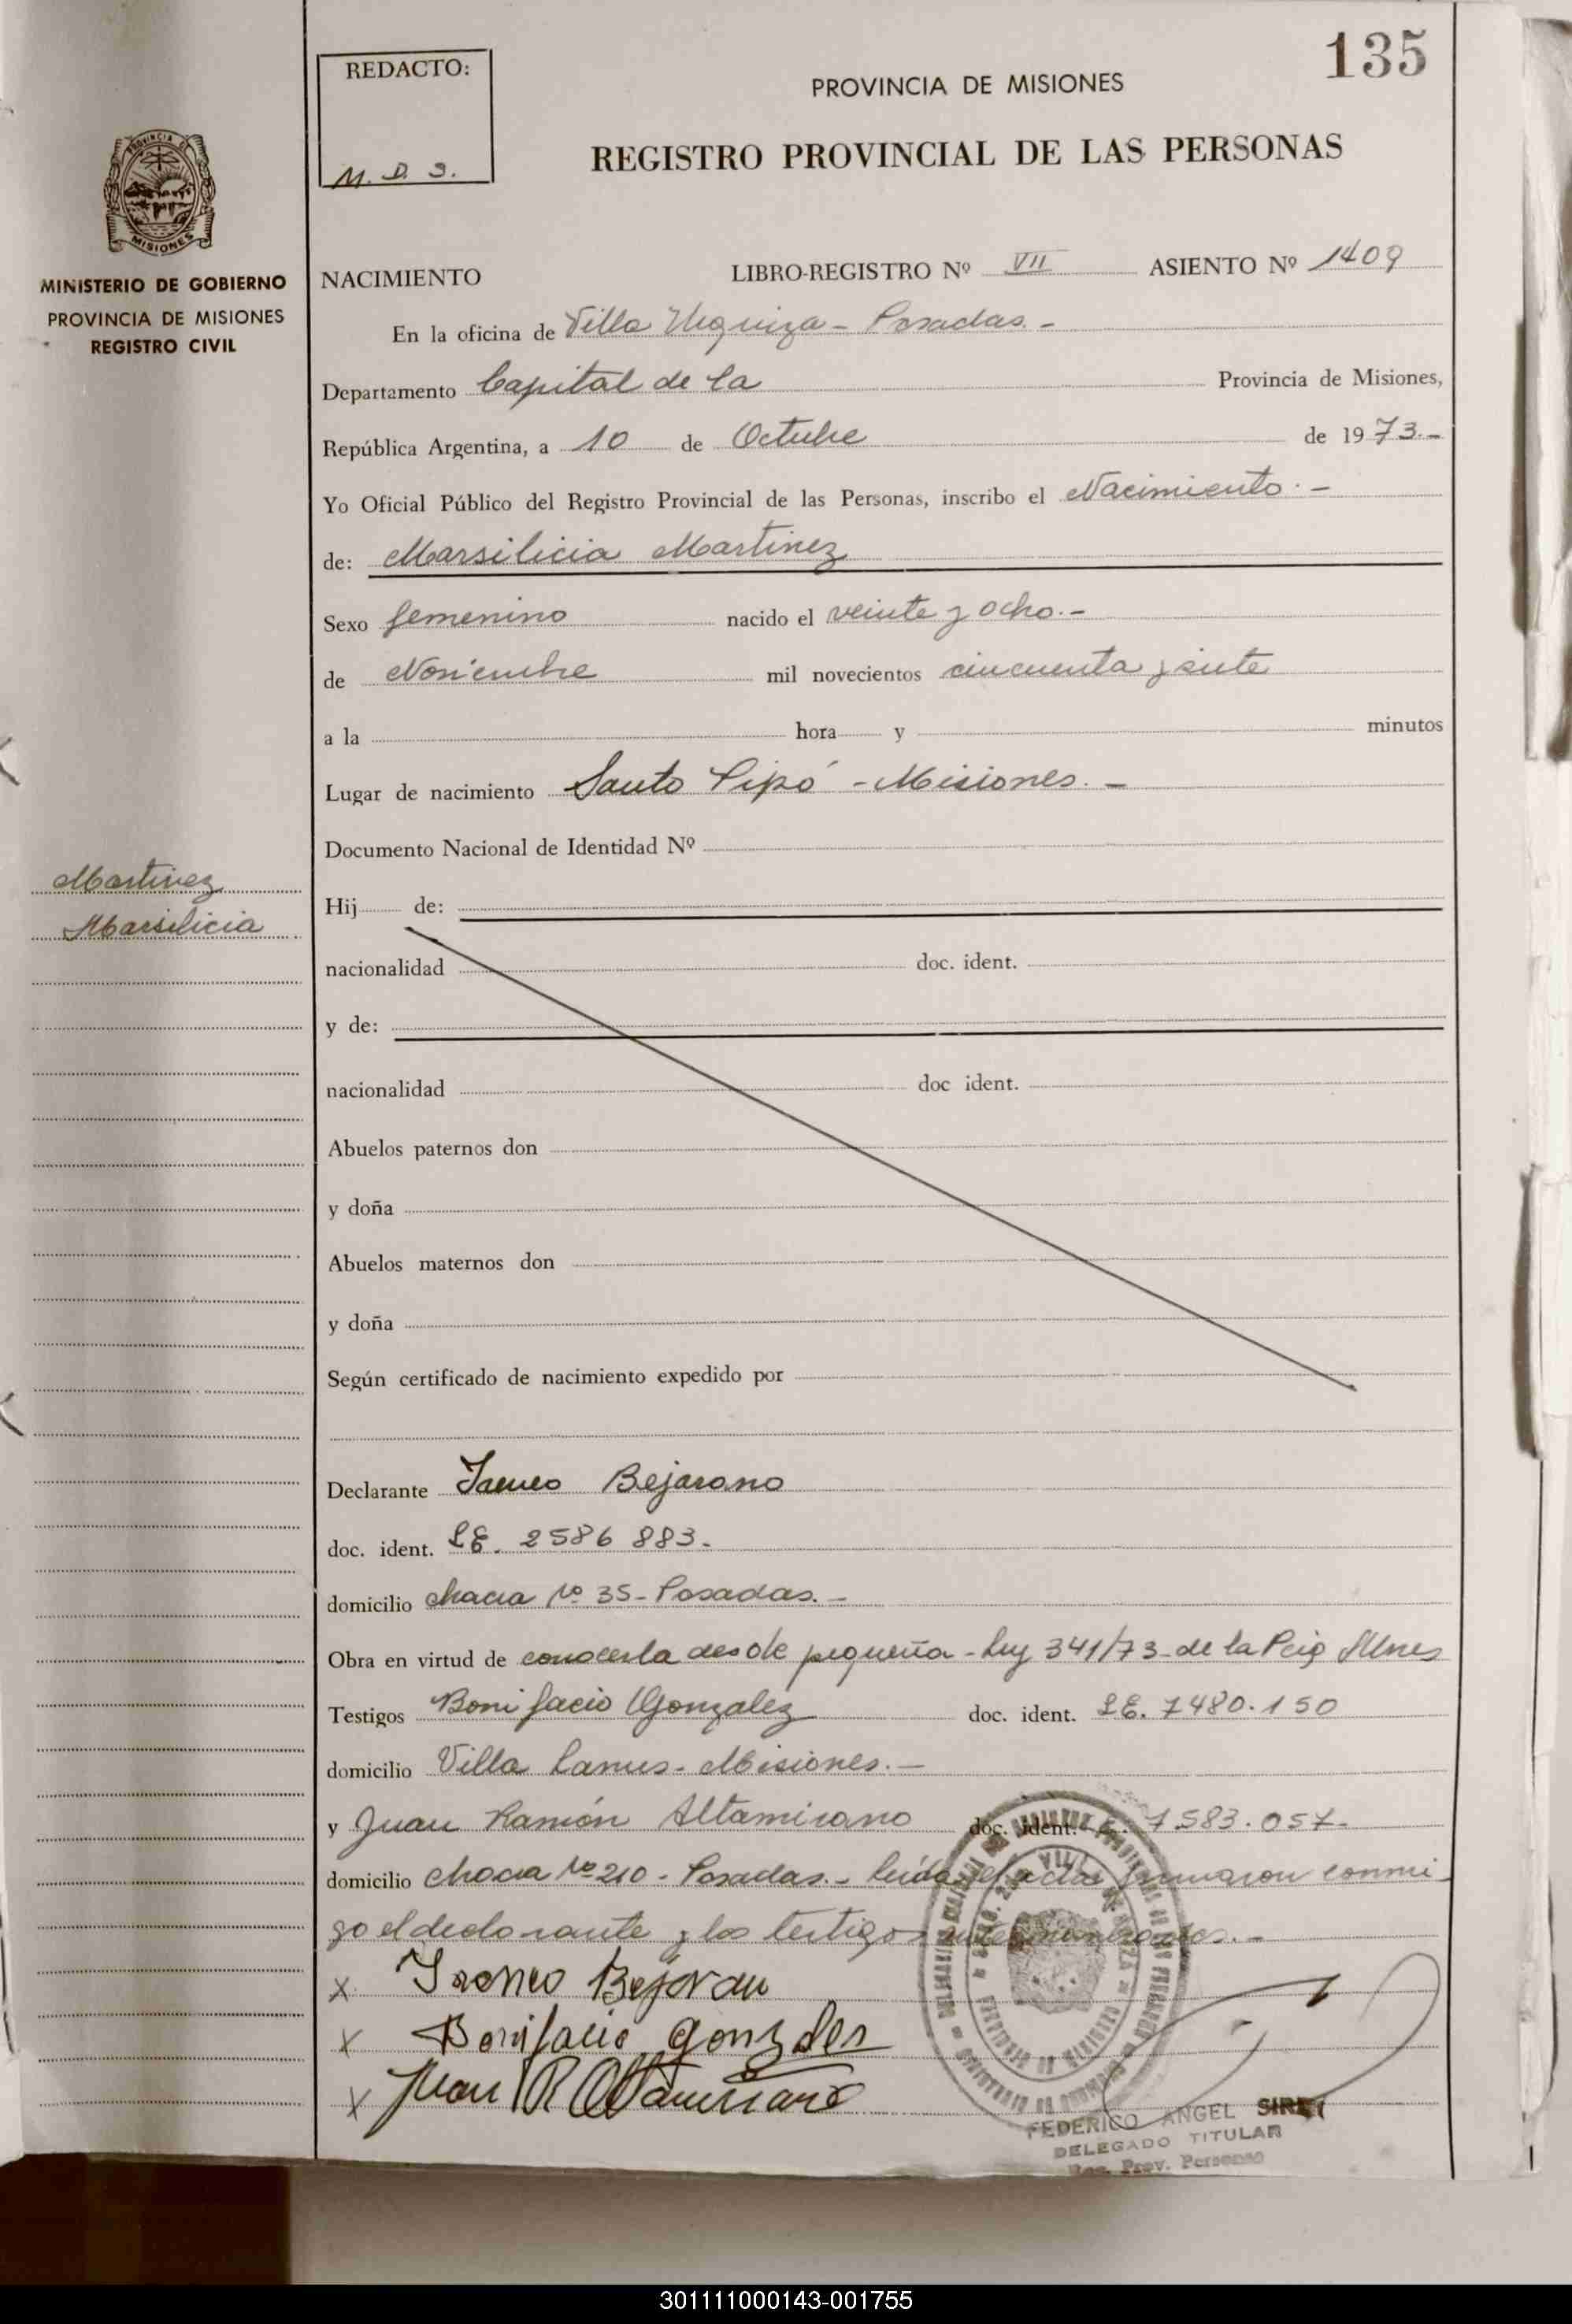 135
REDACTO:
M. D. S.
PROVINCIA DE MISIONES
REGISTRO PROVINCIAL DE LAS PERSONAS
PROVINCIA DE
MISIONES
MINISTERIO DE GOBIERNO
PROVINCIA DE MISIONES
REGISTRO CIVIL
NACIMIENTO LIBRO-REGISTRO Nº VII ASIENTO Nº 1409
En la oficina de Villa Urquiza - Posadas. -
Departamento Capital de la Provincia de Misiones,
República Argentina, a 10 de Octubre de 1973.-
Yo Oficial Público del Registro Provincial de las Personas, inscribo el Nacimiento. -
de: Marsilicia Martinez
Sexo femenino nacido el veinte y ocho.-
de Noviembre mil novecientos cincuenta y siete
a la hora y minutos
Lugar de nacimiento Santo Pipó - Misiones. -
Documento Nacional de Identidad Nº
Martinez
Marsilicia
Hij de:
nacionalidad doc. ident.
y de:
nacionalidad doc ident.
Abuelos paternos don
y doña
Abuelos maternos don
y doña
Según certificado de nacimiento expedido por
Declarante Bejarano
doc. ident. LE. 2586 883.
domicilio chacra Nº 35 - Posadas. -
Obra en virtud de conocerla desde pequeña - Ley 341/73 - de la Mnes
Testigos Bonifacio Gonzalez doc. ident. LE. 7480.150
domicilio Villa Lanus - Misiones. -
y Juan Ramón Altamirano doc. ident. 7.583.057.
domicilio chacra Nº 210 - Posadas. - Leída el acta firmaron conmi-
go el declarante y los testigos antes nombrados. -
x Bejaran
x Bonifacio gonzales
x Juan R Altamirano
FEDERICO ANGEL
DELEGADO TITULAR
Reg. Prov. Personas
301111000143-001755